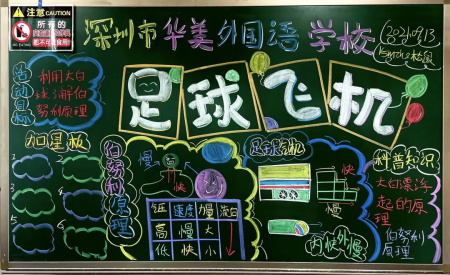 注意 CAUTION
所有的
深圳市 华美外国语学校
20210913
活动目标
利用大白
球了解伯
努利原理
足球飞机
加星板
1
2
3
4
5
6
伯努利原理
慢
快
快
慢
内快外慢
科普知识
大白漂浮
起的原
理
伯努利
原理
速度 力量 流向
高 慢 大
低 快 小